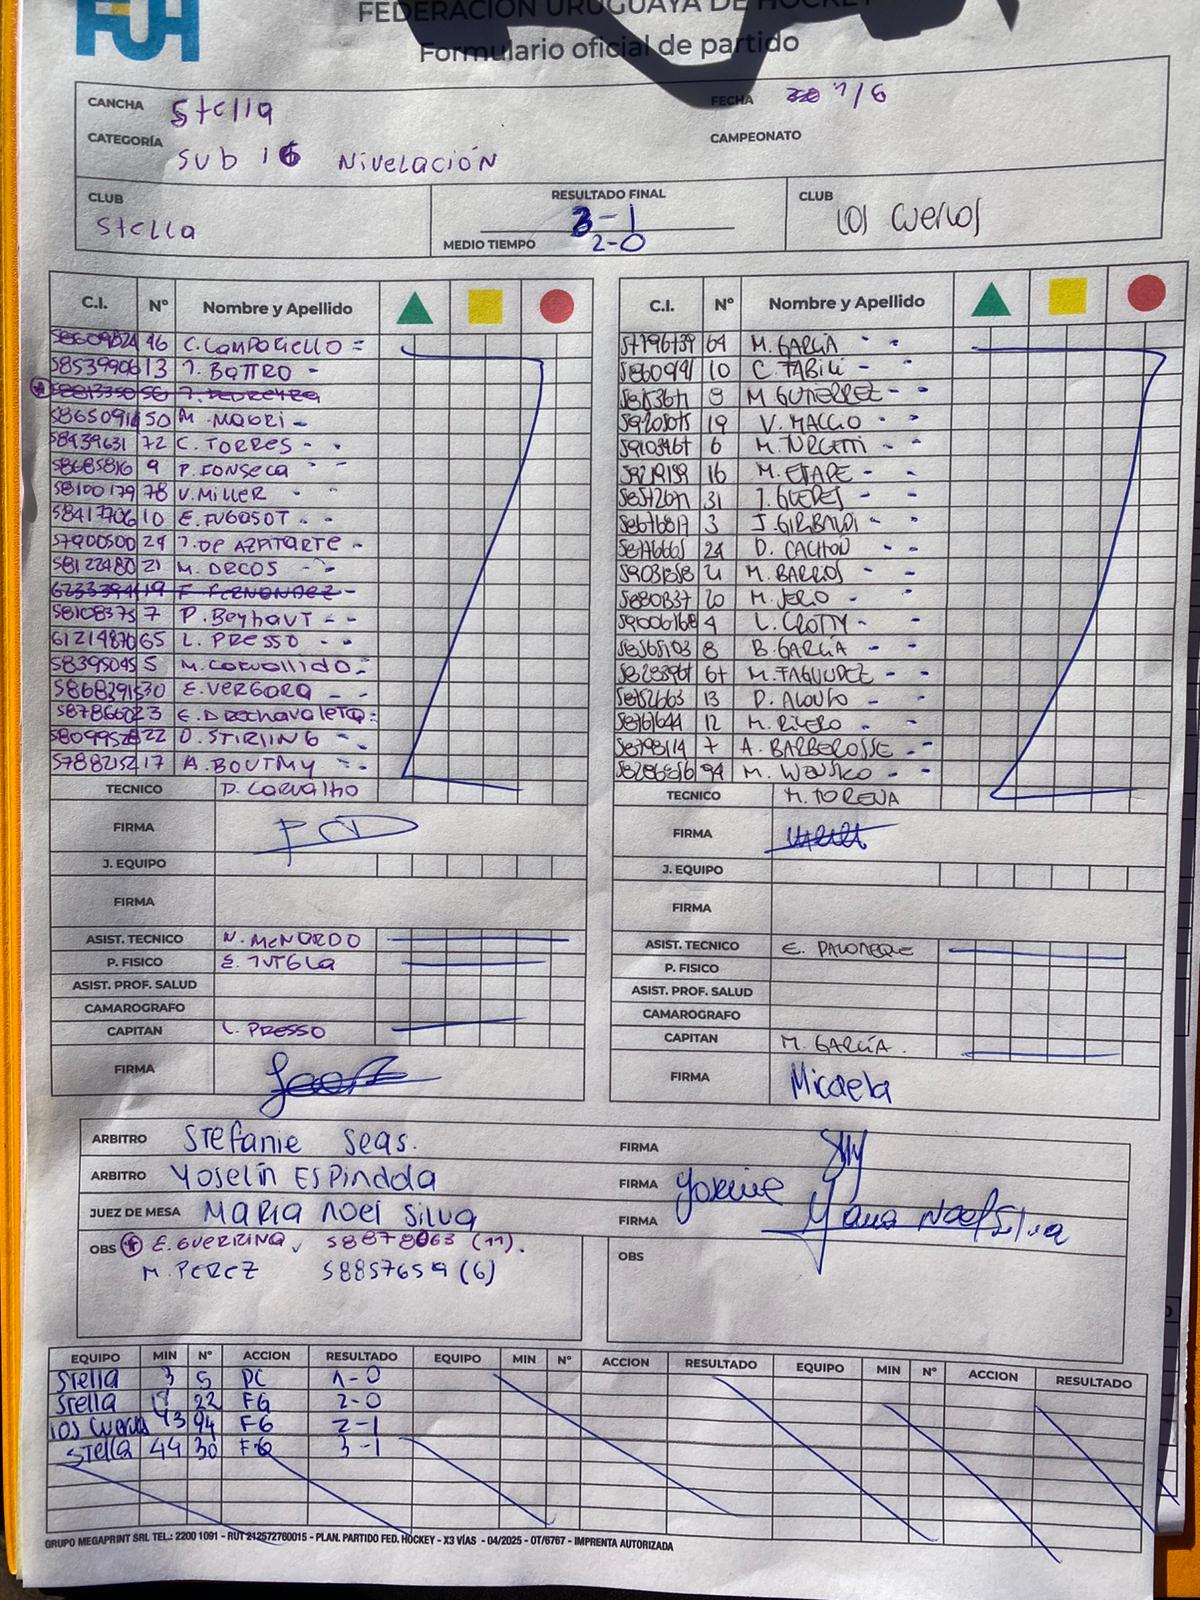 FUH
FEDERACIÓN URUGUAYA DE HOCKEY
Formulario oficial de partido
CANCHA Stella FECHA 7/6
CATEGORÍA Sub 16 Nivelación CAMPEONATO
CLUB Stella RESULTADO FINAL 3-1 MEDIO TIEMPO 2-0 CLUB LOS CUERVOS
C.I. Nº Nombre y Apellido
58609824 16 C. CAMPORIELLO
58539906 13 J. BATTRO
56
58650914 50 M. MAGRI
58939631 72 C. TORRES
58685816 9 P. FONSECA
58100179 78 V. MILLER
58417706 10 E. FUGASOT
57900500 29 J. DE AZPITARTE
58122480 21 M. DRCOS
19 F. FERNANDEZ
58108375 7 P. BEYHAUT
61214870 65 L. PRESSO
58395045 5 M. CARVALLIDO
30 E. VERGARA
3 E. DRECHAVALETA
22 D. STIRLING
57882152 17 A. BOUTMY
TECNICO D. CARVALHO
FIRMA
J. EQUIPO
FIRMA
ASIST. TECNICO N. MENARDO
P. FISICO E. TUTGLA
ASIST. PROF. SALUD
CAMAROGRAFO
CAPITAN L. PRESSO
FIRMA
C.I. Nº Nombre y Apellido
57796739 64 M. GARCÍA
10 C. TABILI
9 M. GUTIERREZ
19 V. MACCIO
6 M. TURCATTI
59219159 16 M. ETAPE
31 J. GUERES
58676817 3 J. GIRIBALDI
24 D. CACHÓN
M. BARROS
20 M. JERO
4 L. CROTTY
58565103 8 B. GARCÍA
M. FAGUNDEZ
58752663 13 D. ALONSO
58761644 12 M. RIVERO
58798114 7 A. BARBEROSSE
94 M.
TECNICO M. TORENA
FIRMA
J. EQUIPO
FIRMA
ASIST. TECNICO E. PALOMEQUE
P. FISICO
ASIST. PROF. SALUD
CAMAROGRAFO
CAPITAN M. GARCÍA.
FIRMA Micaela
ARBITRO Stefanie Seas. FIRMA
ARBITRO Yoselín Espindola FIRMA
JUEZ DE MESA MARIA NOEL SILVA FIRMA Maria Noel Silva
OBS E. GUERRINA, 58878063 (11).
M. PEREZ 58857659 (6)
OBS
EQUIPO MIN Nº ACCION RESULTADO EQUIPO MIN Nº ACCION RESULTADO EQUIPO MIN Nº ACCION RESULTADO
Stella 3 5 PC 1-0
Stella 22 FG 2-0
LOS CUERVOS 43 94 FG 2-1
Stella 44 30 FG 3-1
GRUPO MEGAPRINT SRL TEL.: 2200 1091 - RUT 212572760015 - PLAN. PARTIDO FED. HOCKEY - X3 VÍAS - 04/2025 - OT/6767 - IMPRENTA AUTORIZADA